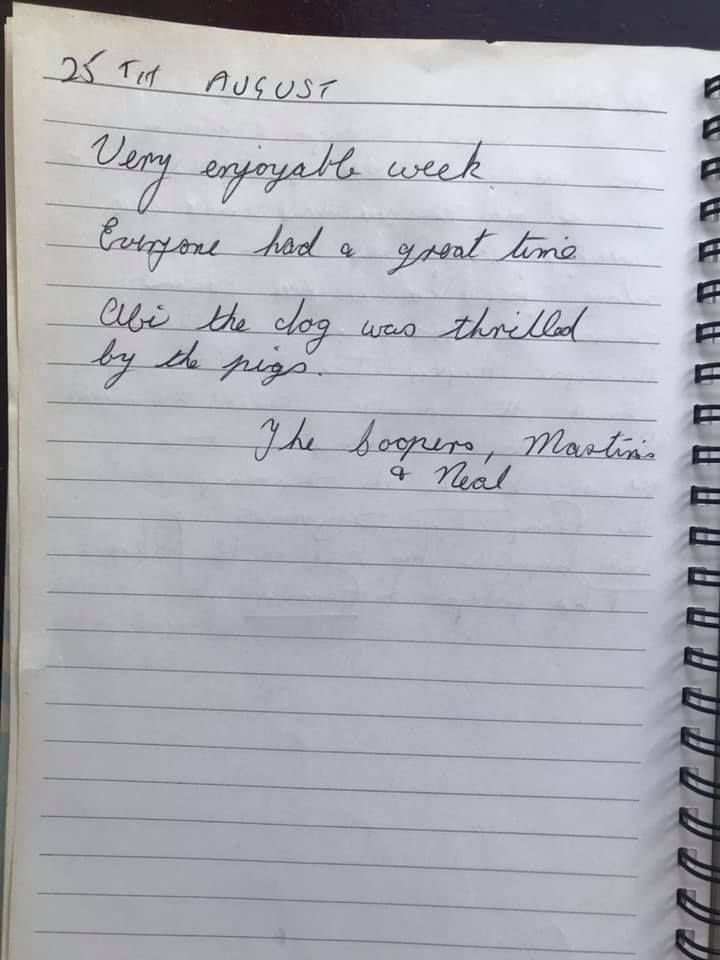 25TH AUGUST
Very enjoyable week
Everyone had a great time
Abi the dog was thrilled
by the pigs.
The Coopers, Martins
& Neal